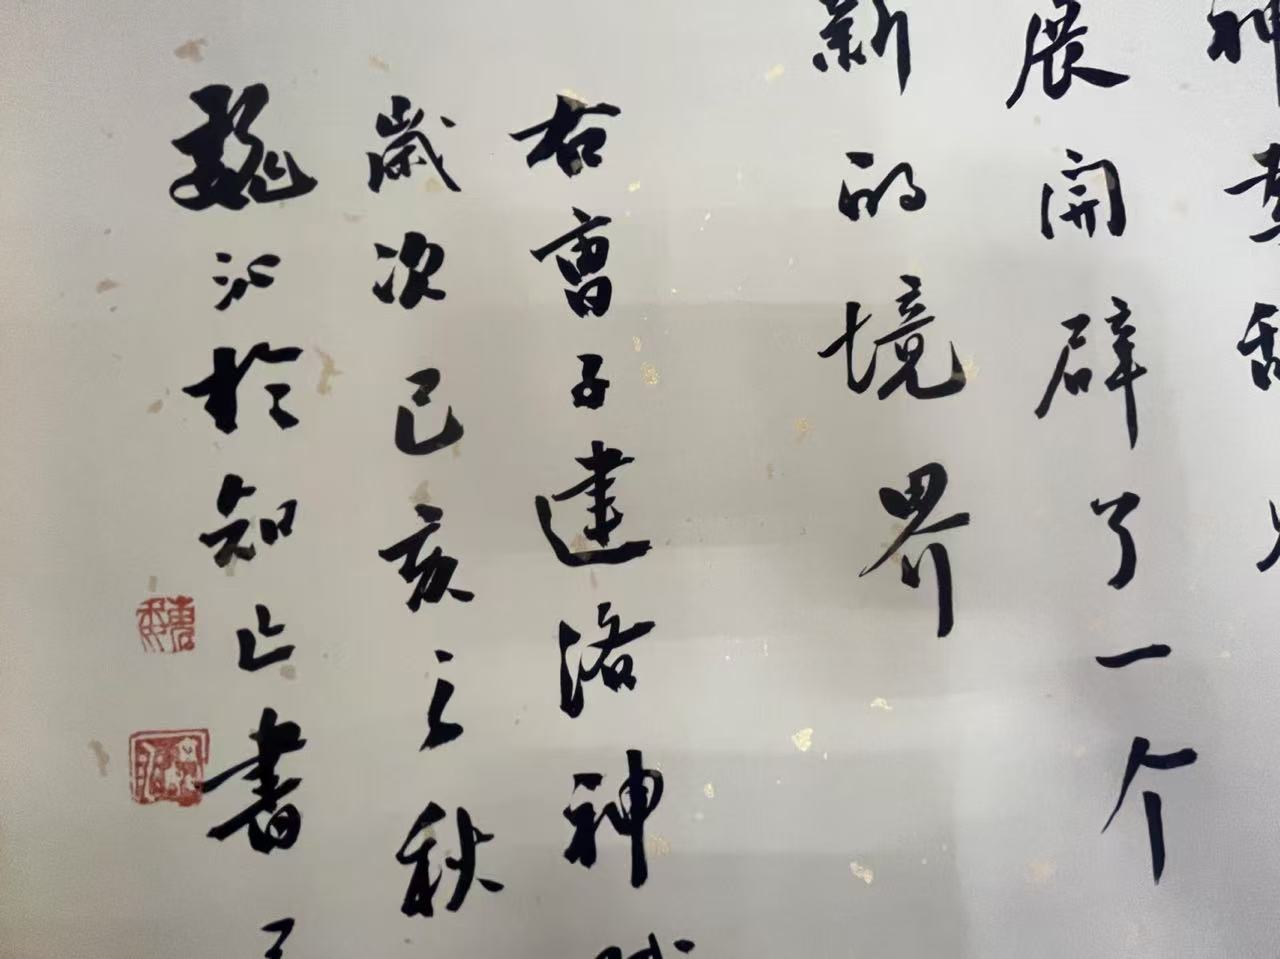 神
展開辟了一个
新的境界
右曹子建洛神
歲次己亥之秋
魏 於知止書
魏